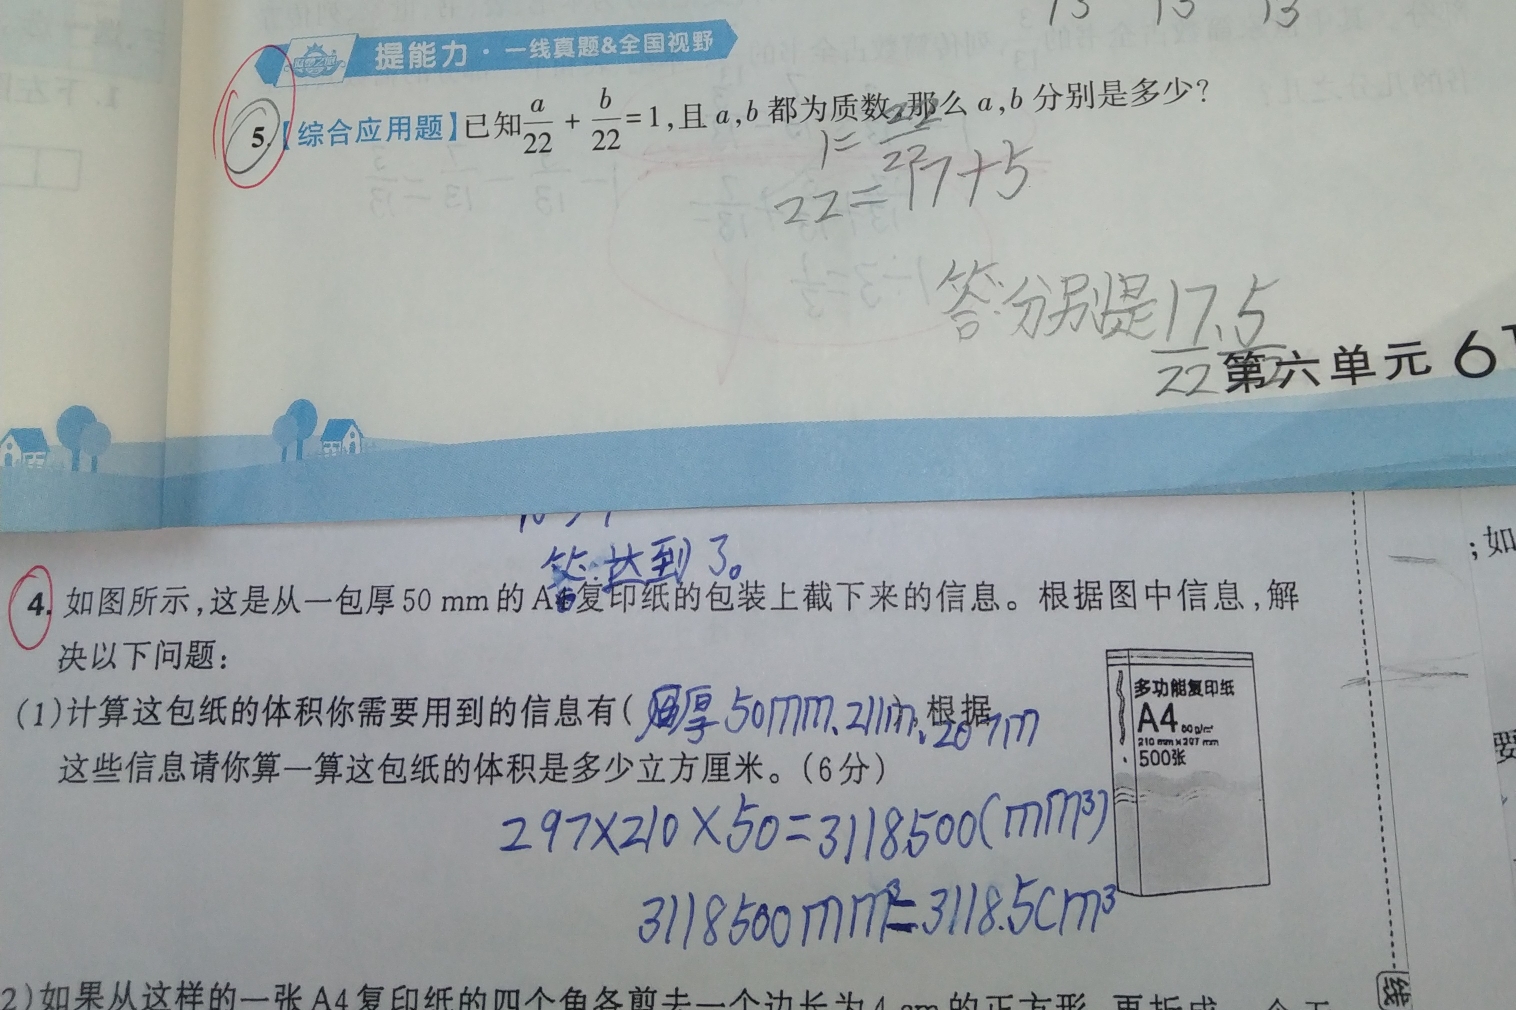 13 13 13
提能力·一线真题&全国视野
5.【综合应用题】已知a/22 + b/22 =1,且a,b都为质数,那么a,b分别是多少?
1=22/22
22=17+5
答:分别是17/22、5/22
第六单元 6
答:达到3。
4. 如图所示,这是从一包厚50 mm的A4复印纸的包装上截下来的信息。根据图中信息,解
决以下问题:
(1)计算这包纸的体积你需要用到的信息有( 厚50mm、211m、207m ),根据
这些信息请你算一算这包纸的体积是多少立方厘米。(6分)
多功能复印纸
A4 80g/m²
210 mm×297 mm
500张
297×210×50=3118500(mm³)
3118500mm³=3118.5cm³
2)如果从这样的一张A4复印纸的四个角各剪去一个边长为4 cm的正方形,再折成一个无
;如
要
线